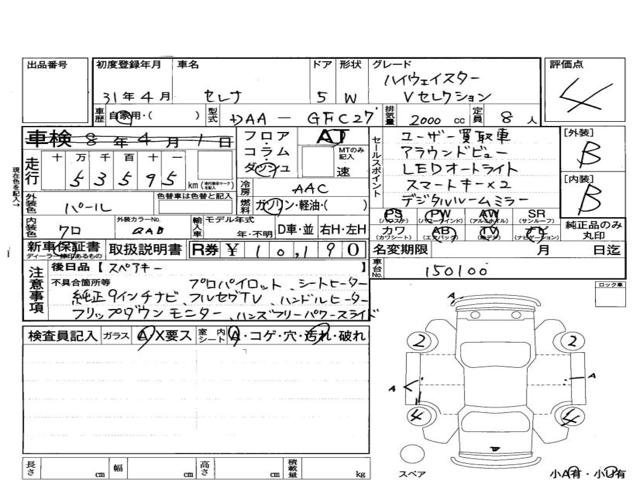 出品番号 初度登録年月 車名 ドア 形状 グレード 評価点
31年4月 セレナ 5 W ハイウェイスター Vセレクション 4
車歴 自家用・( ) 型式 DAA-GFC27 排気量 2000 cc 定員 8 人
車検 8年4月1日 フロア・コラム・ダッシュ AT MTのみ記入 速
セールスポイント
ユーザー買取車
アラウンドビュー
LEDオートライト
スマートキー×2
デジタルルームミラー
[外装] B
[内装] B
走行 十万千百十一
53595 km
冷房 AAC
外装色 パール 色替車は色替と記入 燃料 ガソリン・軽油・( )
内装色 クロ 外装カラーNo. QAB 輸入車 モデル年式 年・不明 D車・並 右H・左H
PS (パワステ) PW (パワーウインド) AW (アルミホイル) SR (サンルーフ)
カワ (カワシート) AB (エアバッグ) TV (テレビ) ナビ (ナビゲーション)
純正品のみ丸印
新車保証書 ディーラー捺印あるもの 取扱説明書 R券 ¥10,190
名変期限 月 日迄
注意事項
後日品【スペアキー
不具合箇所等 プロパイロット、シートヒーター
純正9インチナビ、フルセグTV、ハンドルヒーター
フリップダウンモニター、ハンズフリーパワースライド
車台No. 150100
ロック車
検査員記入 ガラス A/X要ス 室内シート A・コゲ・穴・汚れ・破れ
現在色を記入→
A
2 2
A A
4 4
スペア
小A有・小U有
長さ cm 幅 cm 高さ cm 積載量 kg